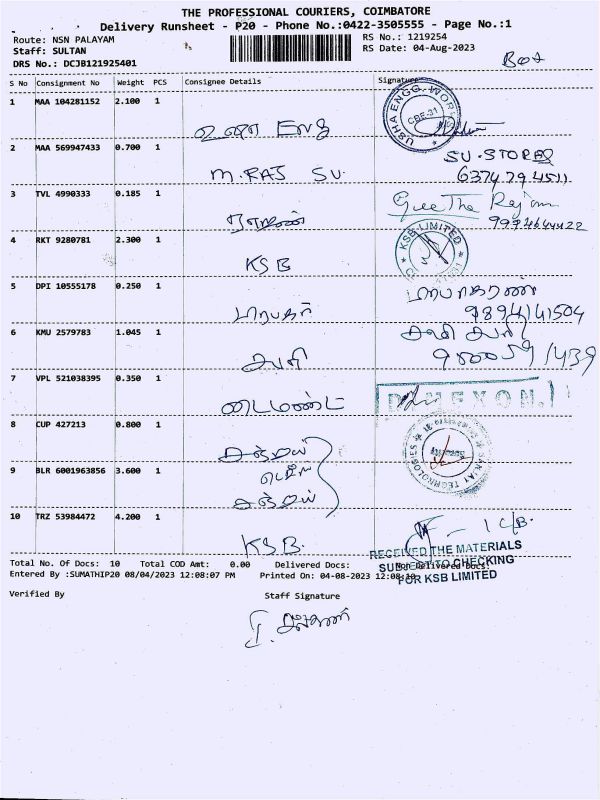 THE PROFESSIONAL COURIERS, COIMBATORE
Delivery Runsheet - P20 - Phone No.:0422-3505555 - Page No.:1
Route: NSN PALAYAM
RS No.: 1219254
Staff: SULTAN
RS Date: 04-Aug-2023
DRS No.: DCJB121925401
Box
S No Consignment No Weight PCS Consignee Details Signature
1 MAA 104281152 2.100 1
USHA ENGG. WORKS
CBE-31
உஷா Eng
2 MAA 569947433 0.700 1
SU-STORES
M.RAJ SU.
6374794511
3 TVL 4990333 0.185 1
Geetha Rajan
9994644422
4 RKT 9280781 2.300 1
KSB LIMITED
KSB
5 DPI 10555178 0.250 1
பிரபாகரன்
9894141504
பிரபகர்
6 KMU 2579783 1.045 1
சபரி
7 VPL 521038395 0.350 1
டைமண்ட்
8 CUP 427213 0.800 1
SANJAI TECHNOLOGIES
சஞ்சய்
9 BLR 6001963856 3.600 1
சஞ்சய்
10 TRZ 53984472 4.200 1
KSB.
RECEIVED THE MATERIALS
SUBJECT TO CHECKING
FOR KSB LIMITED
Total No. Of Docs: 10 Total COD Amt: 0.00 Delivered Docs: Non Delivered Docs:
Entered By :SUMATHIP20 08/04/2023 12:08:07 PM Printed On: 04-08-2023 12:08:10
Verified By Staff Signature